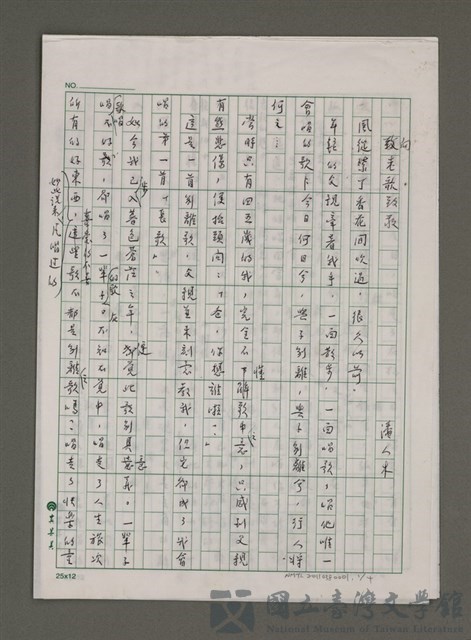 NO.
向老歌致敬
潘人木
風從紫丁香花間吹過,很久以前。
年輕的父親牽著我手,一面散步,一面唱歌,唱他唯一
會唱的歌「今日何日兮,與子別離,與子別離兮,行人將
何之
當時只有四五歲的我,完全不懂歌中意,只感到父親
有點悲傷,便抬頭問:「爸,你想誰啦?」
這是一首別離歌,父親並未刻意教我,但完卻成了我會
唱的第一首「長歌」。
如今我已入暮色蒼茫之年,便覺此歌別具意義。一輩子
唱不好歌,卻唱了一輩子的歌,在不知不覺中,唱走了人生旅次
所有的好東西,這些歌不都是別離歌嗎?唱走了快樂的童
25x12
國立臺灣文學館
National Museum of Taiwan Literature